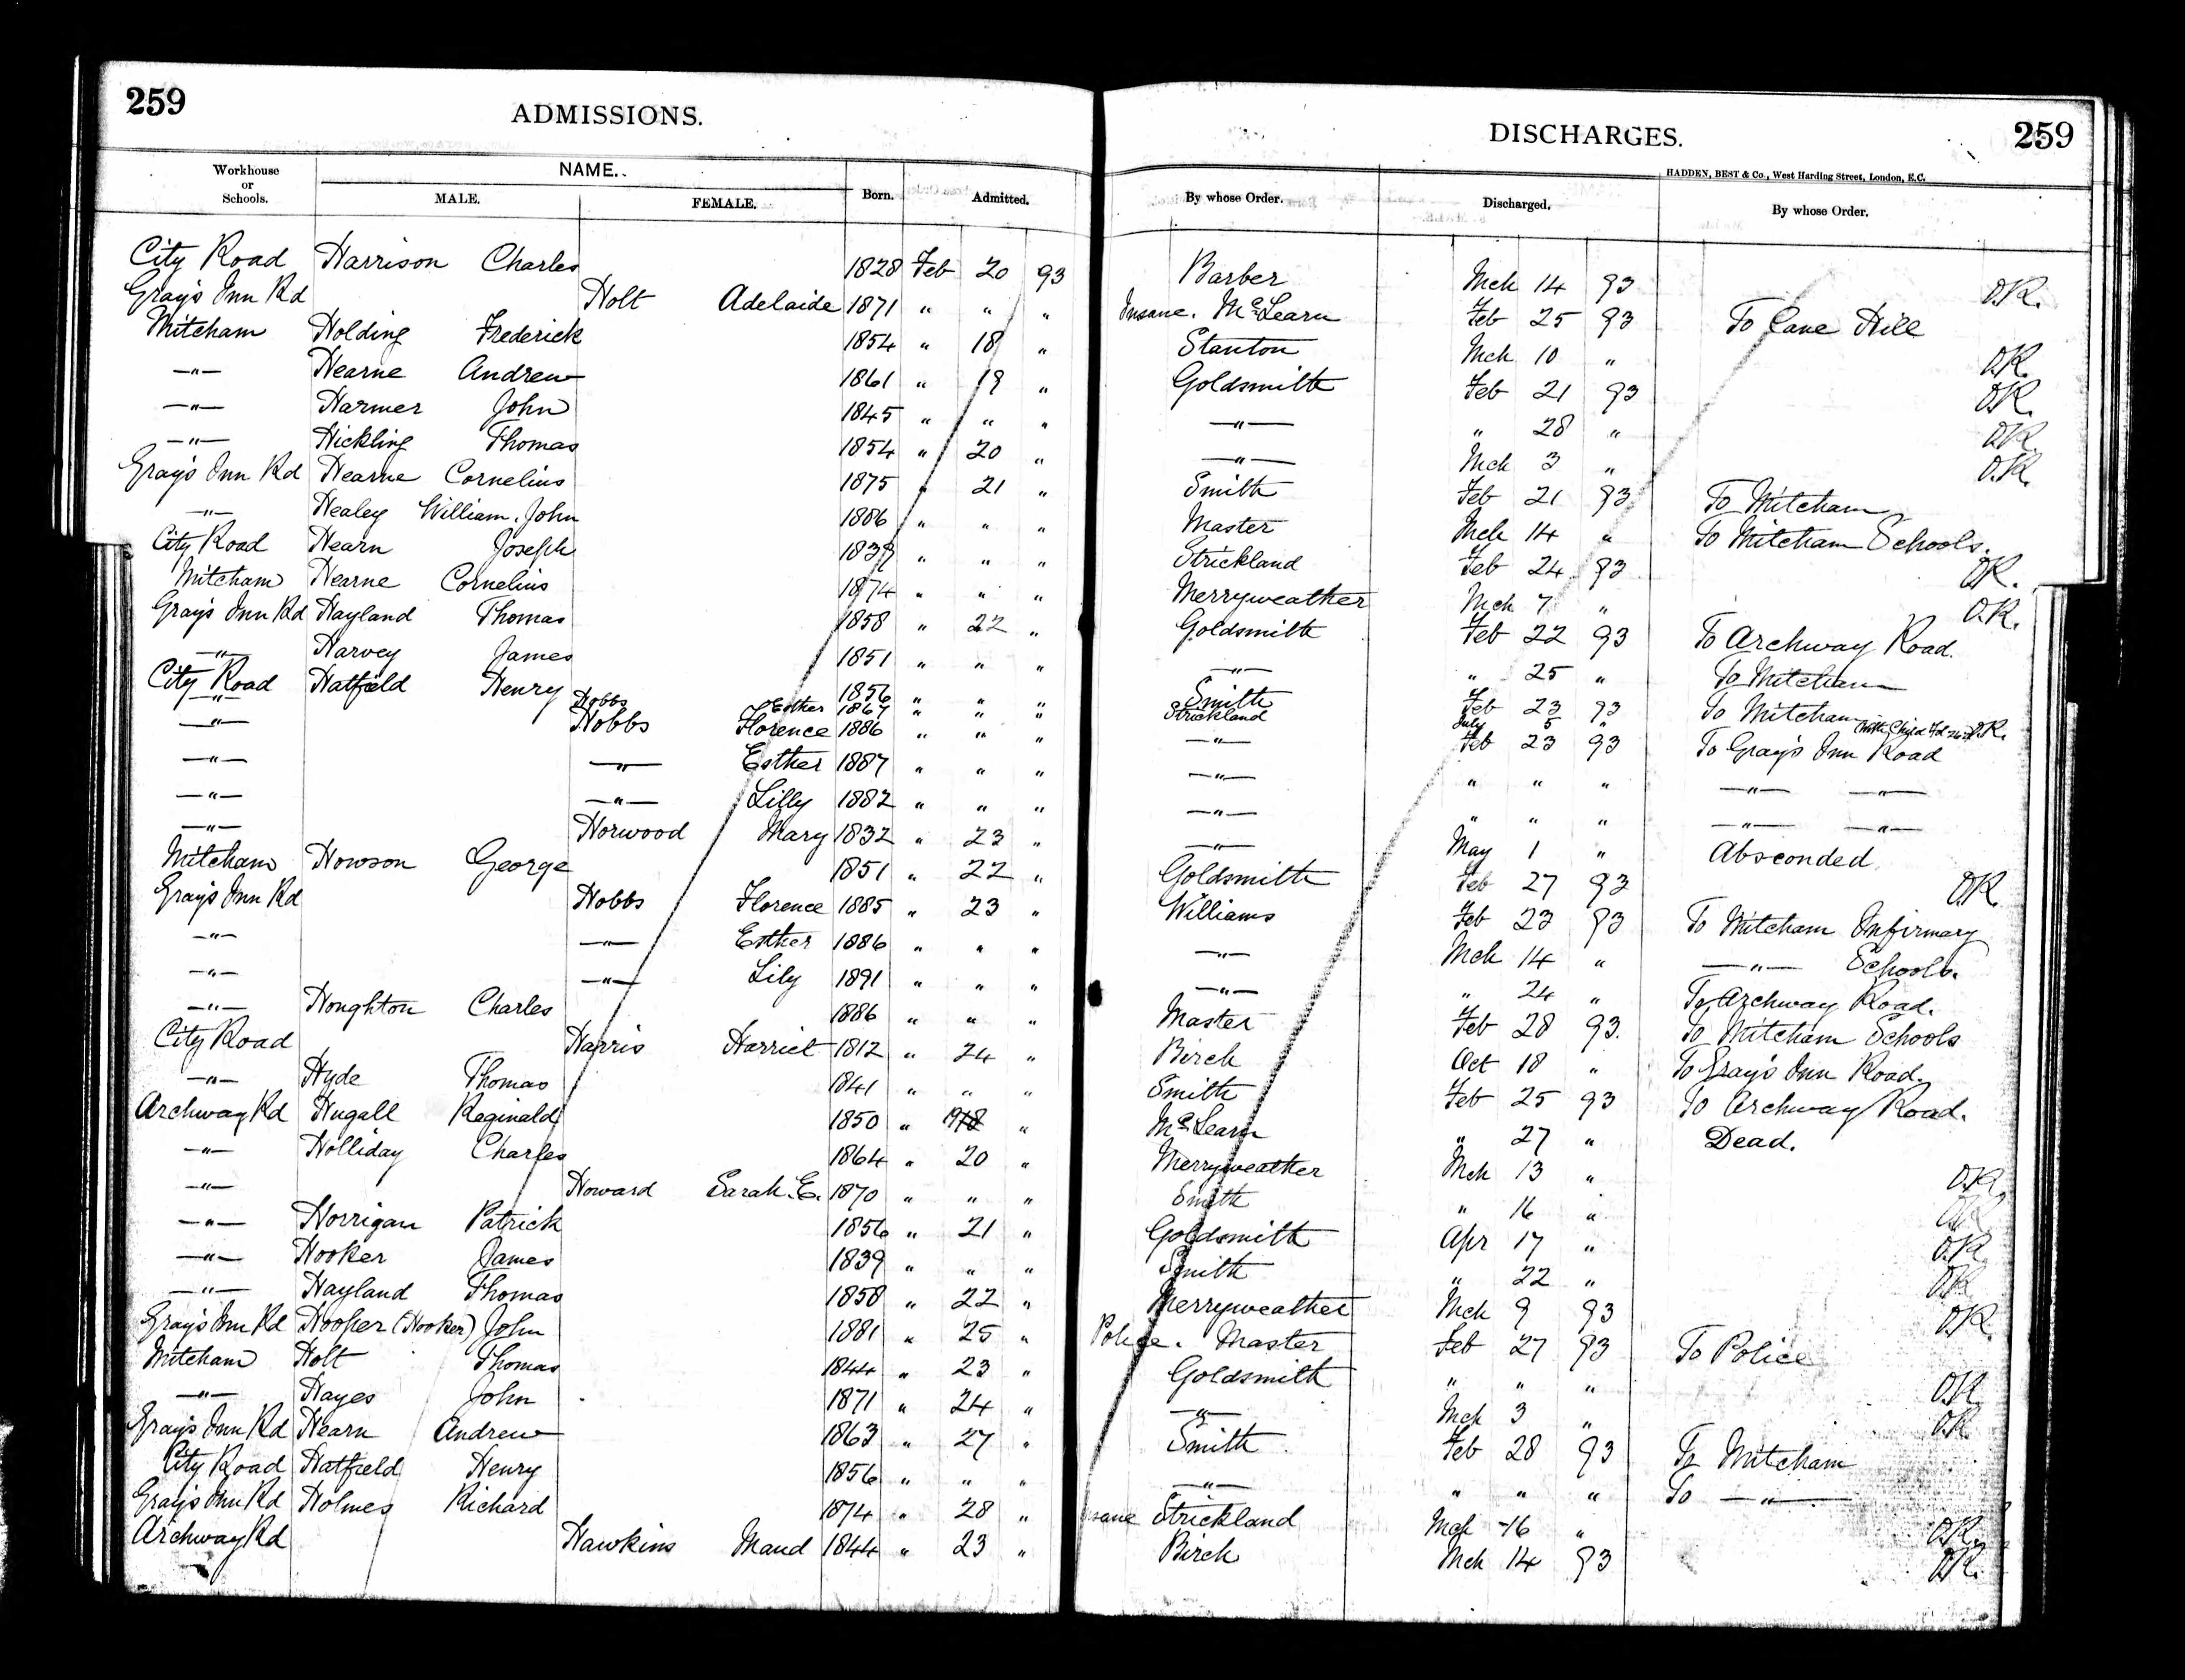 259 ADMISSIONS. DISCHARGES. 259
HADDEN, BEST & Co., West Harding Street, London, E.C.
Workhouse or Schools. NAME. MALE. FEMALE. Born. Admitted. By whose Order. Discharged. By whose Order.
City Road Harrison Charles 1828 Feb 20 93 Barber Mch 14 93 O.R.
Gray's Inn Rd Holt Adelaide 1871 " " " Insane. McLearn Feb 25 93 To Cane Hill
Mitcham Holding Frederick 1854 " 18 " Stanton Mch 10 " O.R.
—"— Hearne Andrew 1861 " 19 " Goldsmith Feb 21 93 O.R.
—"— Harmer John 1845 " " " —"— " 28 " O.R.
—"— Hickling Thomas 1854 " 20 " —"— Mch 3 " O.R.
Gray's Inn Rd Hearne Cornelius 1875 " 21 " Smith Feb 21 93 To Mitcham
—"— Healey William. John 1886 " " " Master Mch 14 " To Mitcham Schools.
City Road Hearn Joseph 1839 " " " Strickland Feb 24 93 O.R.
Mitcham Hearne Cornelius 1874 " " " Merryweather Mch 7 " O.R.
Gray's Inn Rd Hayland Thomas 1858 " 22 " Goldsmith Feb 22 93 To Archway Road.
—"— Harvey James 1851 " " " —"— " 25 " To Mitcham
City Road Hatfield Henry 1856 " " " Smith Feb 23 93 To Mitcham
—"— Hobbs Esther 1867 " " " Strickland July 5 " O.R.
—"— Hobbs Florence 1886 " " " —"— Feb 23 93 To Gray's Inn Road
—"— —"— Esther 1887 " " " —"— " " " —"— —"—
—"— —"— Lilly 1882 " " " —"— " " " —"— —"—
—"— Norwood Mary 1832 " 23 " —"— May 1 " Absconded
Mitcham Howson George 1851 " 22 " Goldsmith Feb 27 93 O.R.
Gray's Inn Rd Hobbs Florence 1885 " 23 " Williams Feb 23 93 To Mitcham Infirmary
—"— —"— Esther 1886 " " " —"— Mch 14 " —"— Schools.
—"— —"— Lily 1891 " " " —"— " 24 " To Archway Road.
—"— Houghton Charles 1886 " " " Master Feb 28 93. To Mitcham Schools
City Road Harris Harriet 1812 " 24 " Birch Oct 18 " To Gray's Inn Road.
—"— Hyde Thomas 1841 " " " Smith Feb 25 93 To Archway Road.
Archway Rd Hugall Reginald 1850 " " McLearn " 27 " Dead.
—"— Holliday Charles 1864 " 20 " Merryweather Mch 13 " O.R.
—"— Howard Sarah. E. 1870 " " " Smith " 16 " O.R.
—"— Horrigan Patrick 1856 " 21 " Goldsmith Apr 17 " O.R.
—"— Hooker James 1839 " " " Smith " 22 " O.R.
—"— Hayland Thomas 1858 " 22 " Merryweather Mch 9 93 O.R.
Gray's Inn Rd Hooper (Hooker) John 1881 " 25 " Police. Master Feb 27 93 To Police
Mitcham Holt Thomas 1844 " 23 " Goldsmith " " " O.R.
—"— Hayes John 1871 " 24 " —"— Mch 3 " O.R.
Gray's Inn Rd Hearn Andrew 1863 " 27 " Smith Feb 28 93 To Mitcham
City Road Hatfield Henry 1856 " " " —"— " " " To —"—
Gray's Inn Rd Holmes Richard 1874 " 28 " Strickland Mch 16 " O.R.
Archway Rd Hawkins Maud 1844 " 23 " Birch Mch 14 93 O.R.